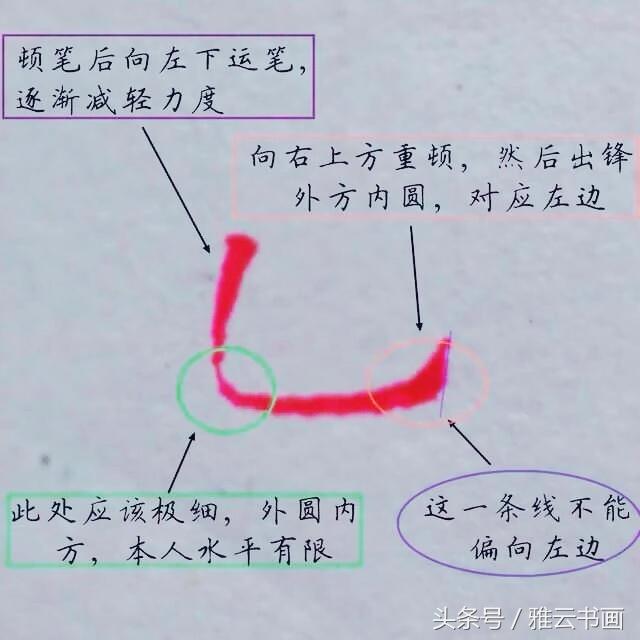 顿笔后向左下运笔，
逐渐减轻力度
向右上方重顿，然后出锋
外方内圆，对应左边
此处应该极细，外圆内
方，本人水平有限
这一条线不能
偏向左边
头条号 / 雅云书画